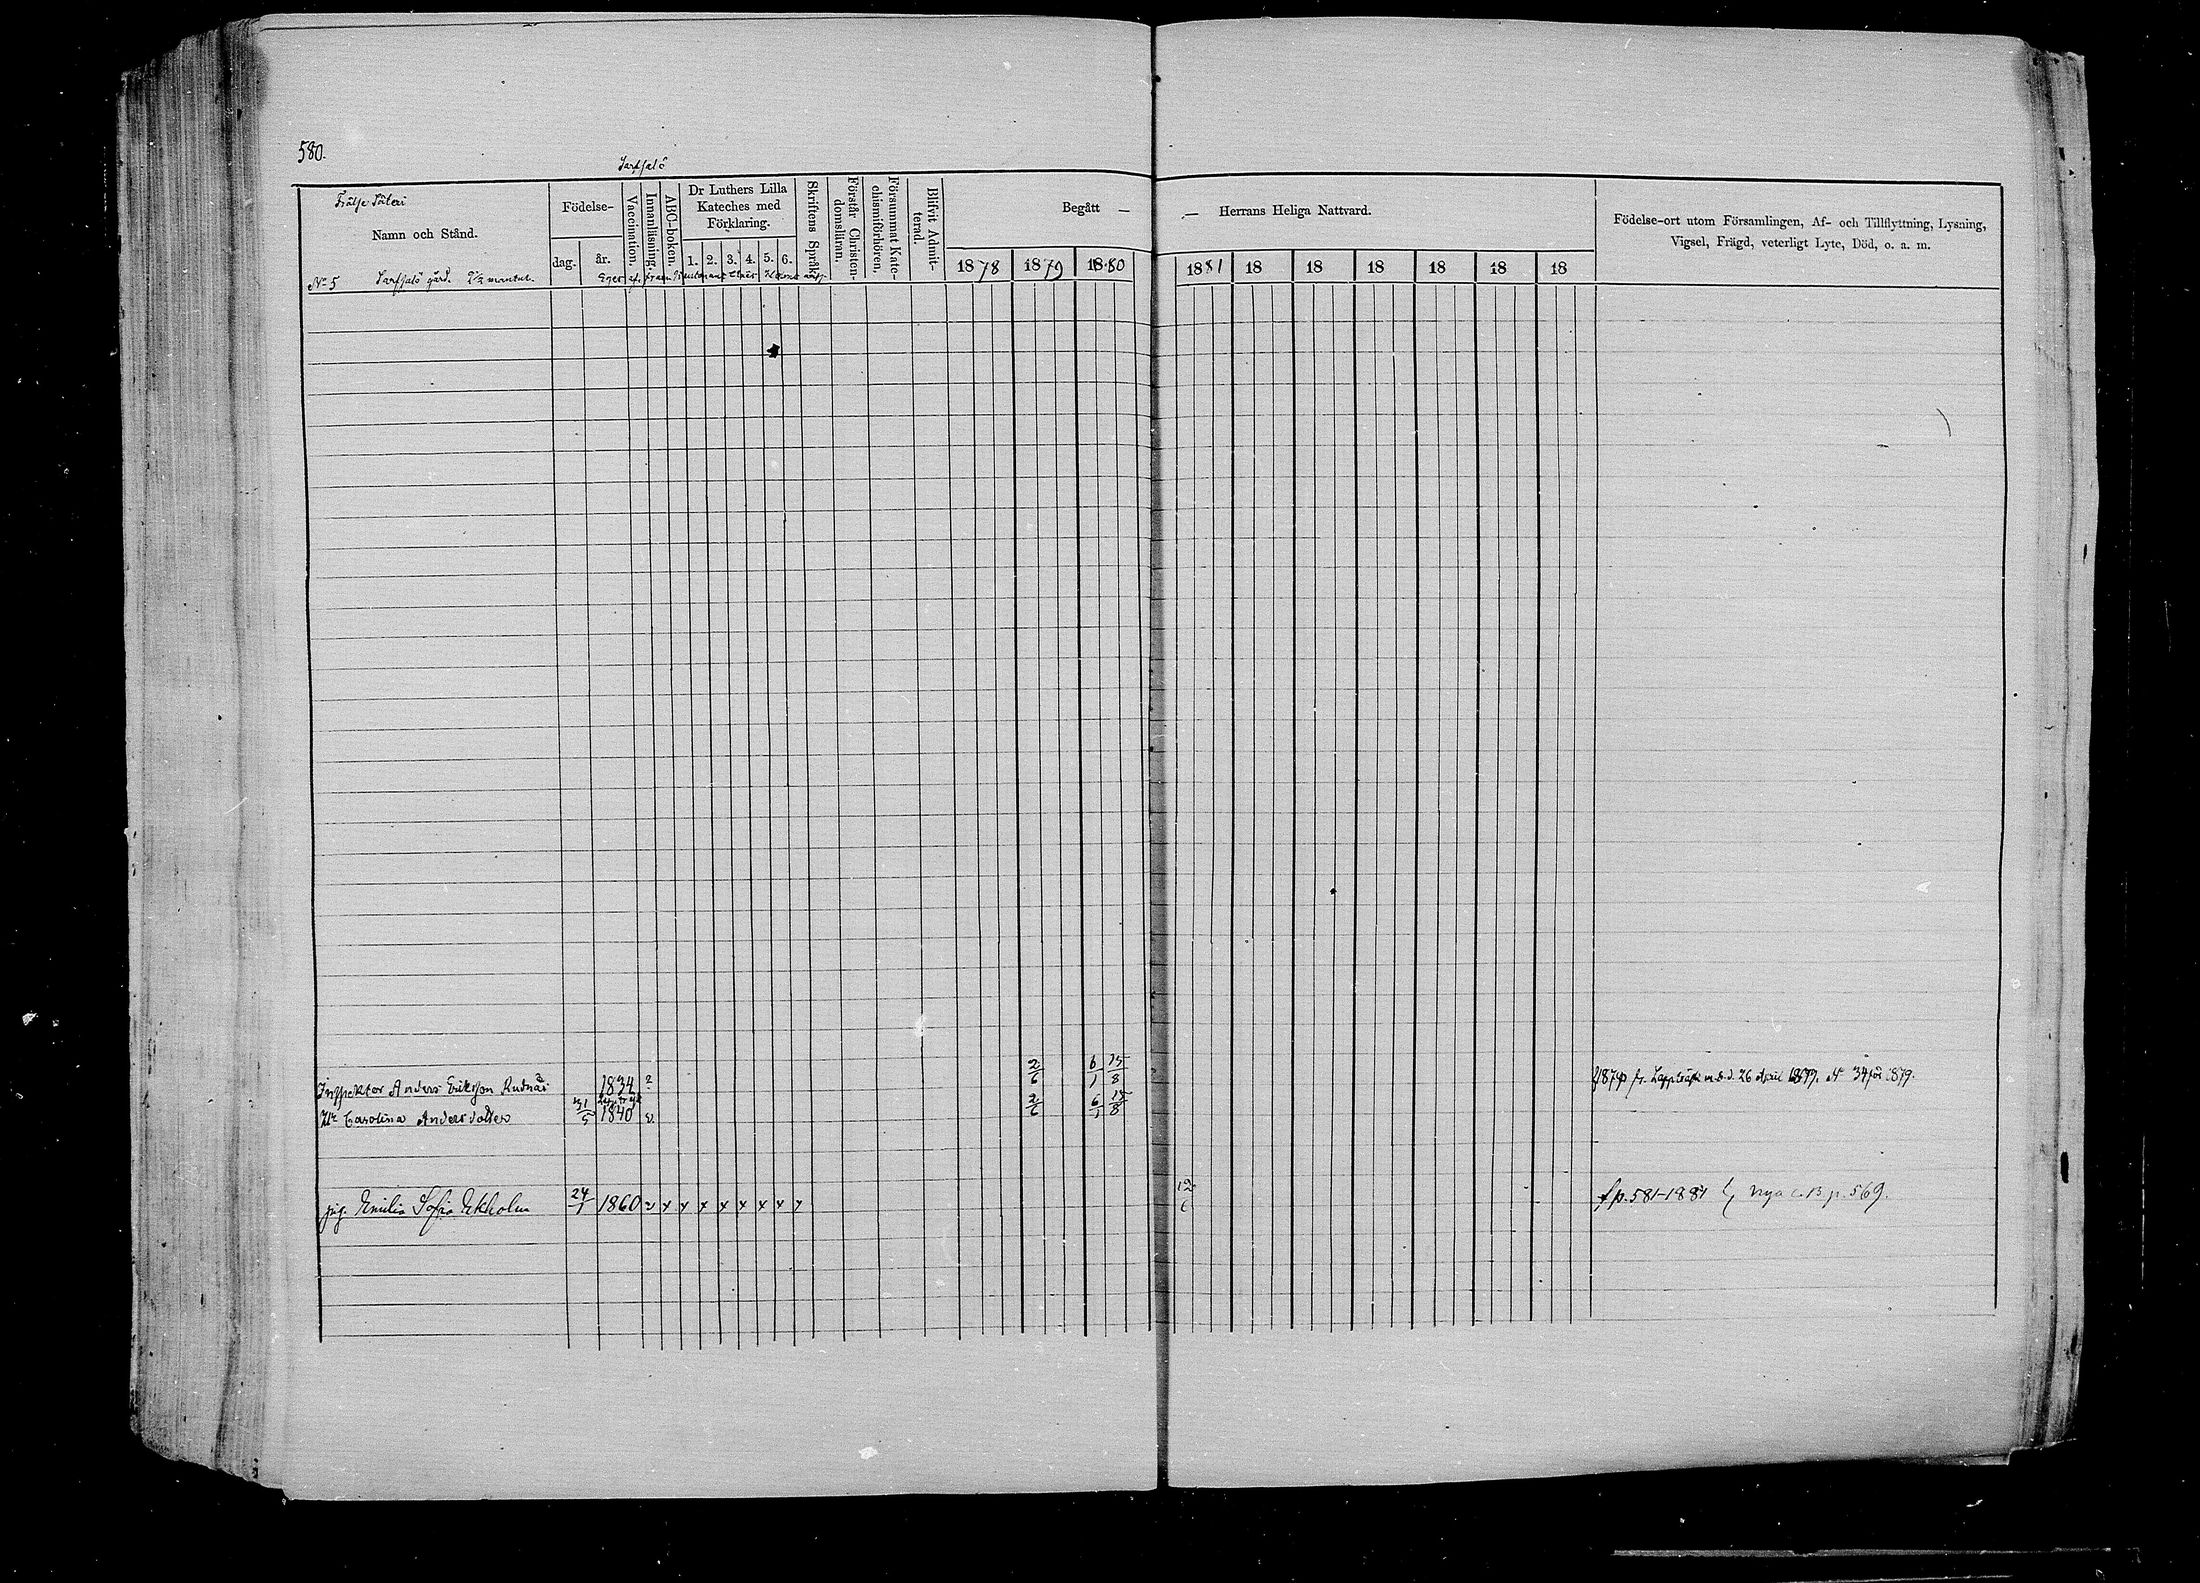 580.
Sarfsalö
Frälse Säteri
Namn och Stånd.
Födelse-
dag.
år.
Vaccination.
Innanläsning.
ABC-boken.
Dr Luthers Lilla
Kateches med
Förklaring.
1. 2. 3. 4. 5. 6.
Skriftens Språk.
Förstår Christen-
domsläran.
Försummat Kate-
chismiförhören.
Blifvit Admit-
terad.
Begått —
— Herrans Heliga Nattvard.
1878 1879 1880 1881 18 18 18 18 18 18
Födelse-ort utom Församlingen, Af- och Tillflyttning, Lysning,
Vigsel, Frägd, veterligt Lyte, Död, o. a. m.
No 5 Sarfsalö gård. mantal. Eges af
Inspektor Anders Eriksson Rudnäs 1834 2/6 6/1 15/8 fr. Lappträsk m. b. d. 26 April 1879. No 34 för 1879.
Lappträsk
Hu Carolina Andersdotter 31/5 1840 v. 2/6 6/1 15/8
pig. Emilia Sofia Ekholm 24/1 1860 v x x x x x x x x 12/6 f p. 581-1881 nya c. B p. 569.